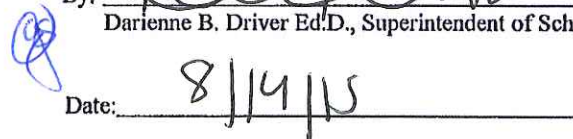 By:
Darienne B. Driver Ed.D., Superintendent of Sch
Date: 8/14/15